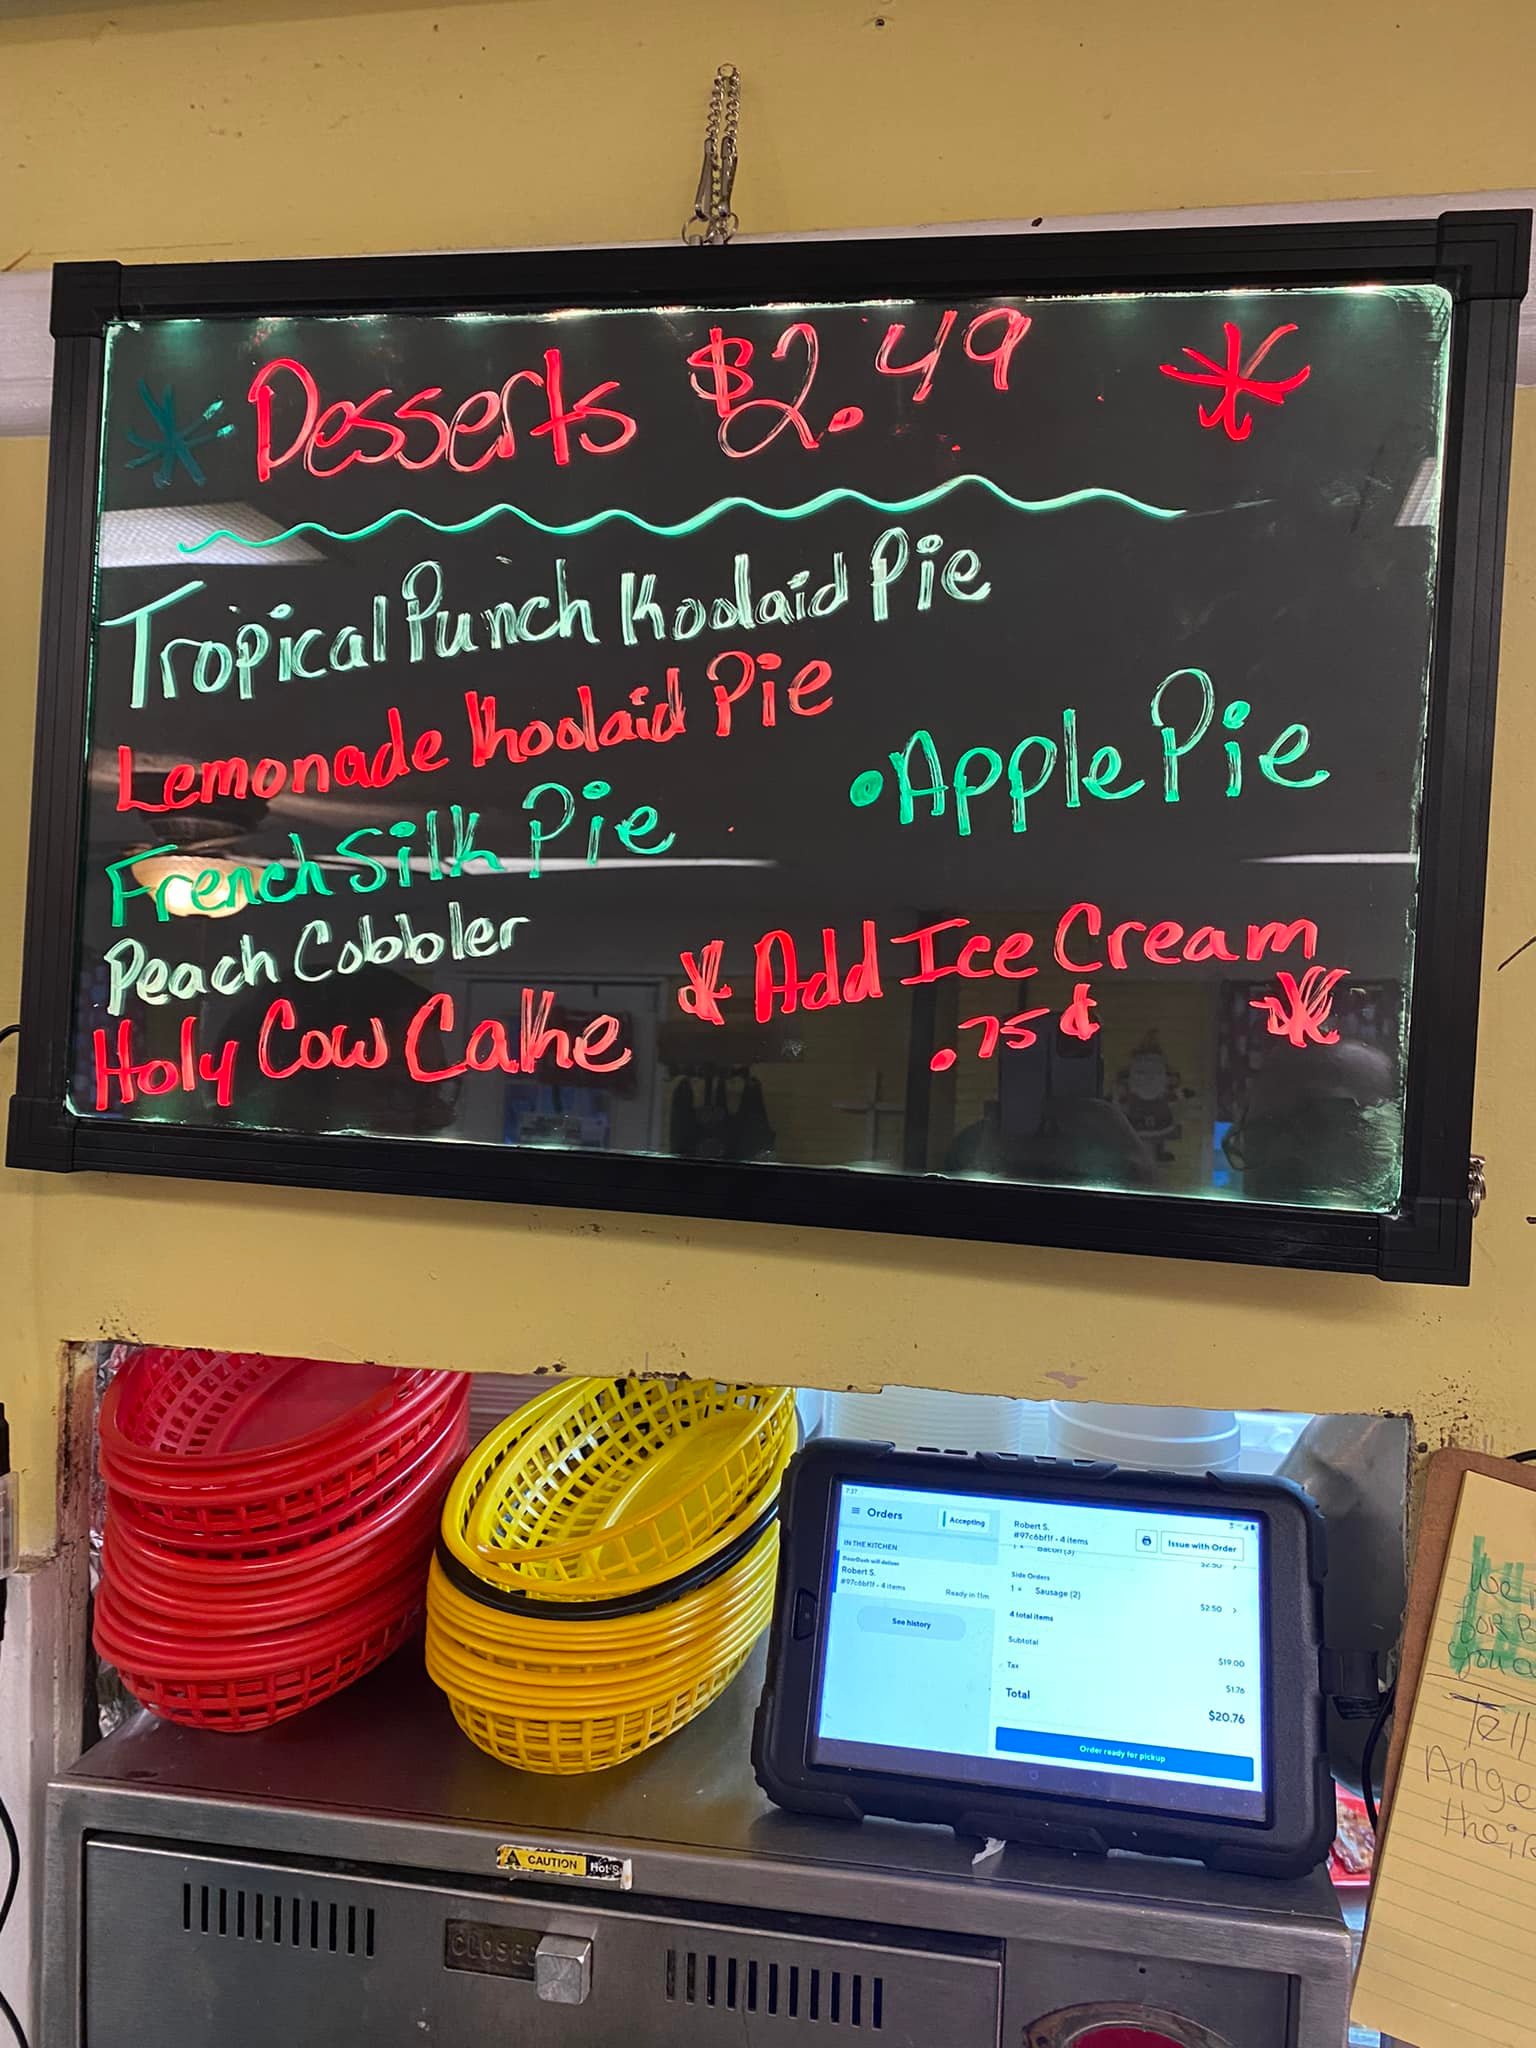 Desserts $2.49
Tropical Punch Koolaid Pie
Lemonade Koolaid Pie
French Silk Pie
Peach Cobbler
Holy Cow Cake
Apple Pie
Add Ice Cream
.75¢
7:37
Orders
Accepting
IN THE KITCHEN
DoorDash will deliver
Robert S.
#97c6bf1f • 4 items
Ready in 11m
See history
Robert S.
#97c6bf1f • 4 items
Issue with Order
1 × Bacon (3)
$2.50
Side Orders
1 × Sausage (2)
$2.50
4 total items
Subtotal
$19.00
Tax
$1.76
Total
$20.76
Order ready for pickup
CAUTION
Hot
CLOSE
We
you
Tell
Ange
their